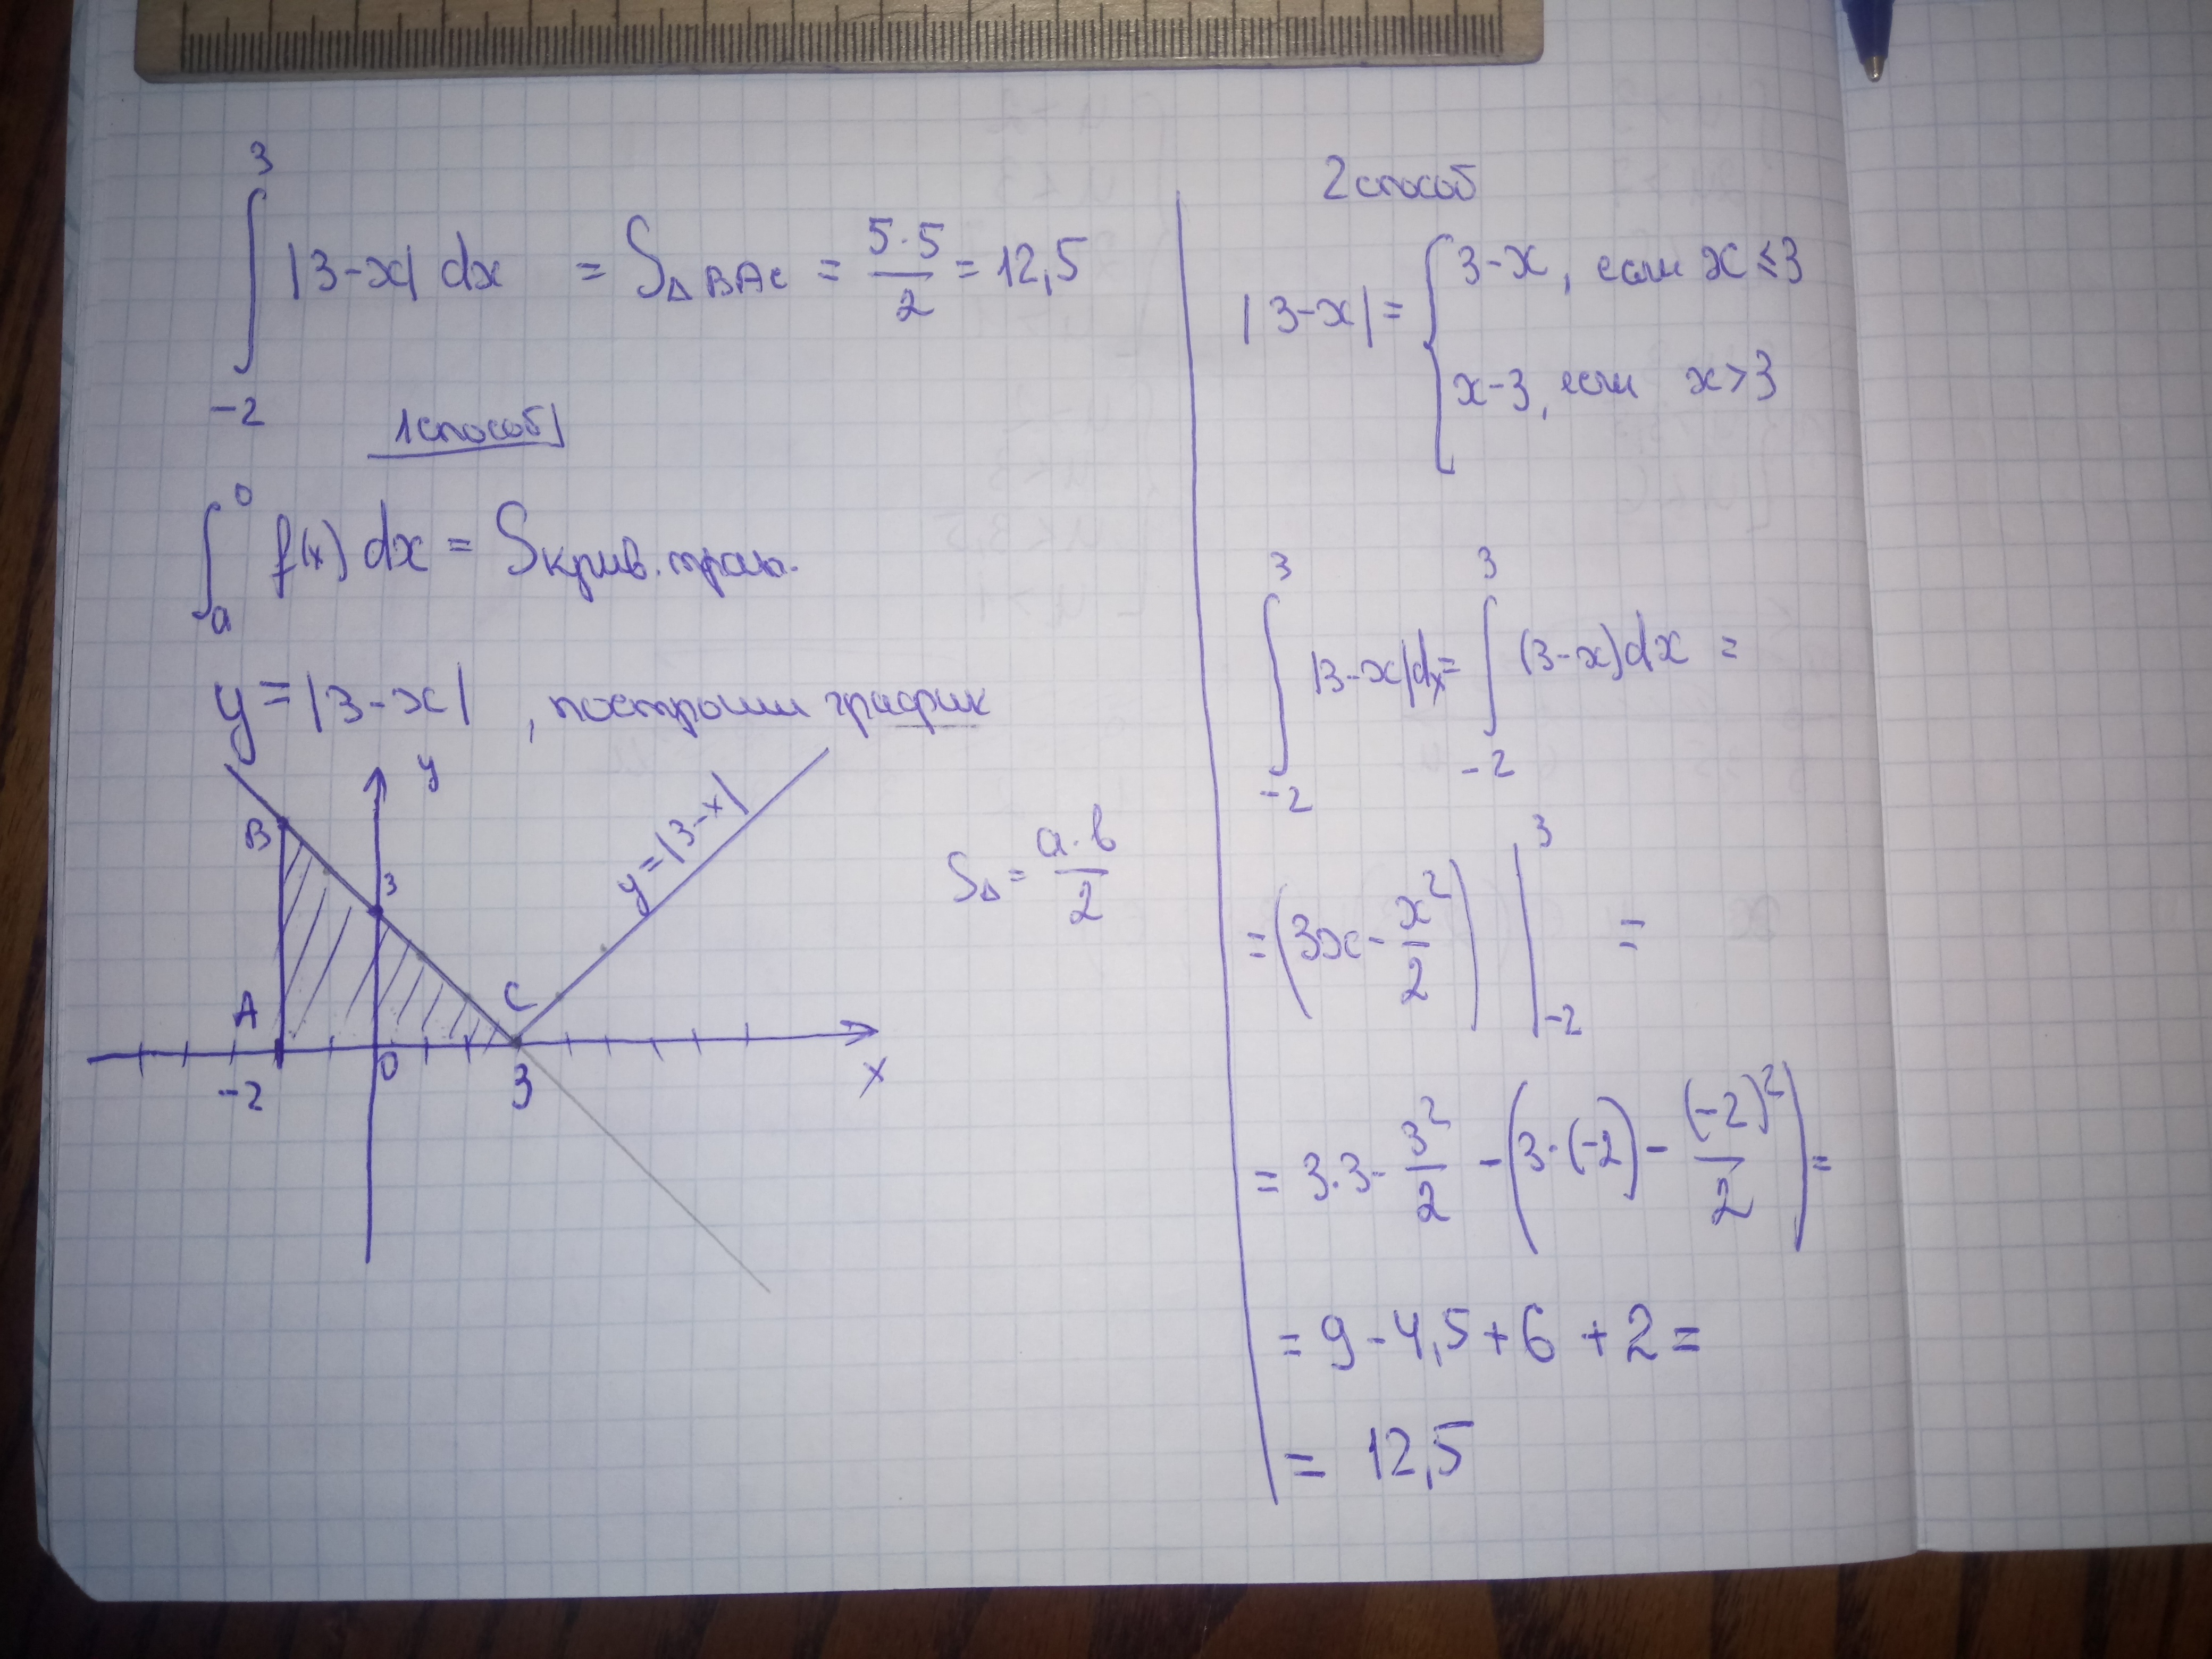 ∫₋₂³ |3-x| dx = S△BAC = 5·5/2 = 12,5
1 способ
∫ₐ⁰ f(x) dx = Sкрив. трап.
y=|3-x|, построим график
y
B
3
y=|3-x|
A
C
-2
0
3
x
S△ = a·b/2
2 способ
|3-x| = { 3-x, если x≤3
x-3, если x>3
∫₋₂³ |3-x|dx = ∫₋₂³ (3-x)dx =
= (3x - x²/2) |₋₂³ =
= 3·3 - 3²/2 - (3·(-2) - (-2)²/2) =
= 9 - 4,5 + 6 + 2 =
= 12,5